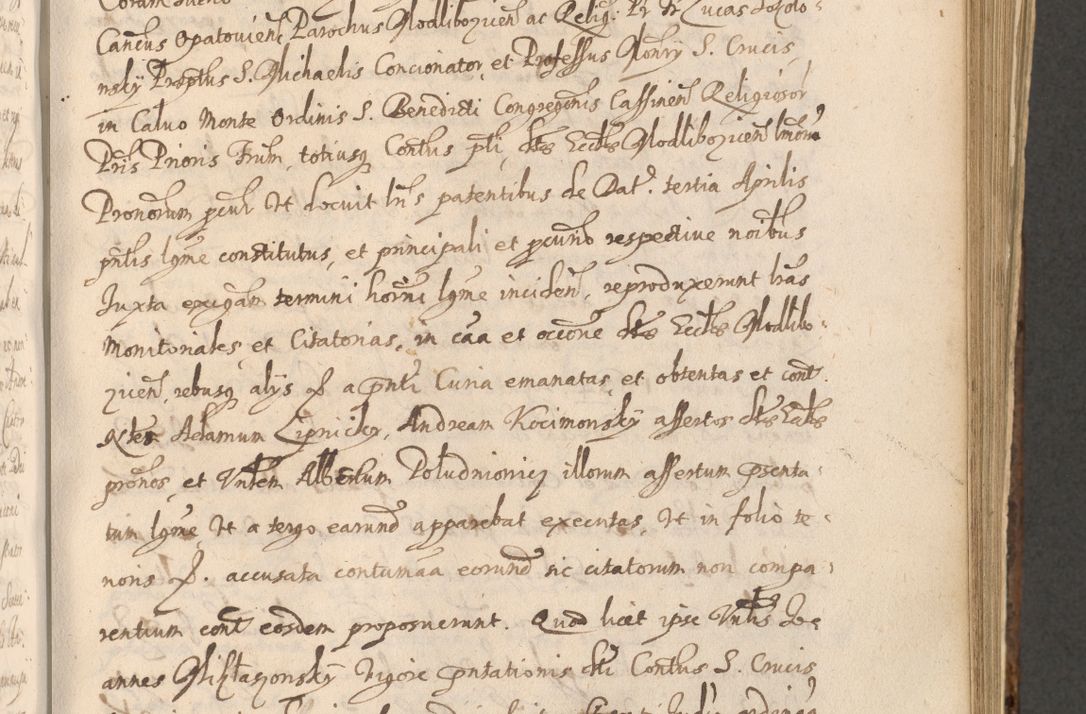 Canćus Opatovień Parochus Modlibozicen̄ ac Relig: Pr Fr Lucas Dokolo-
nsky Præptus S. Michaelis Concionator et Professus Monrÿ S. Crucis
in Calvo Monte Ordinis S. Benedicti Congregonis Cassinen̄ Religiosor
Pris Prioris Frum, totiusq Contus pti, dtæ Ecctæ Modlibozicen̄
Pronorum pcur Ut docuit lris patentibus de Dat. tertia Aprilis
pntis lgme constitutus, et principali et pcurio respective noibus
Juxta exigam termini horne lgme inciden̄, reproduxerunt lras
Monitoriales et Citatorias, in caa et occone dtæ Ecctæ Modlibo-
zicen̄, rebusq alÿs & a pnti Curia emanatas et obtentas et cont.
Adamum Lipnicky, Andream Kocimonsky assertos dtæ Ecctæ
pronos et Vntem Albertum Poludniowicz illorum assertum psenta-
tum lgme, Ut a tergo earund apparebat executas, Ut in folio te-
noris &. accusata contumacia eorund sic citatorum non compa-
rentium cont eosdem proposuerunt. Quod licet ipse Vntis Jo-
annes Vigore pntationis dti Contus S. Crucis